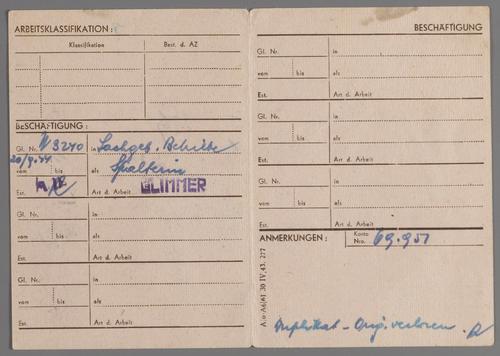 ARBEITSKLASSIFIKATION:
Klassifikation Best. d. AZ
BESCHÄFTIGUNG:
Gl. Nr. W 3240 in Sachgeb.
20/9.44
vom bis als Spalterin
Est. Art d. Arbeit GLIMMER
Gl. Nr. in
vom bis als
Est. Art d. Arbeit
Gl. Nr. in
vom bis als
Est. Art d. Arbeit
BESCHÄFTIGUNG
Gl. Nr. in
vom bis als
Est. Art d. Arbeit
Gl. Nr. in
vom bis als
Est. Art d. Arbeit
Gl. Nr. in
vom bis als
Est. Art d. Arbeit
ANMERKUNGEN: Konto Nro. 69.951
Duplikat - Orig. verloren.